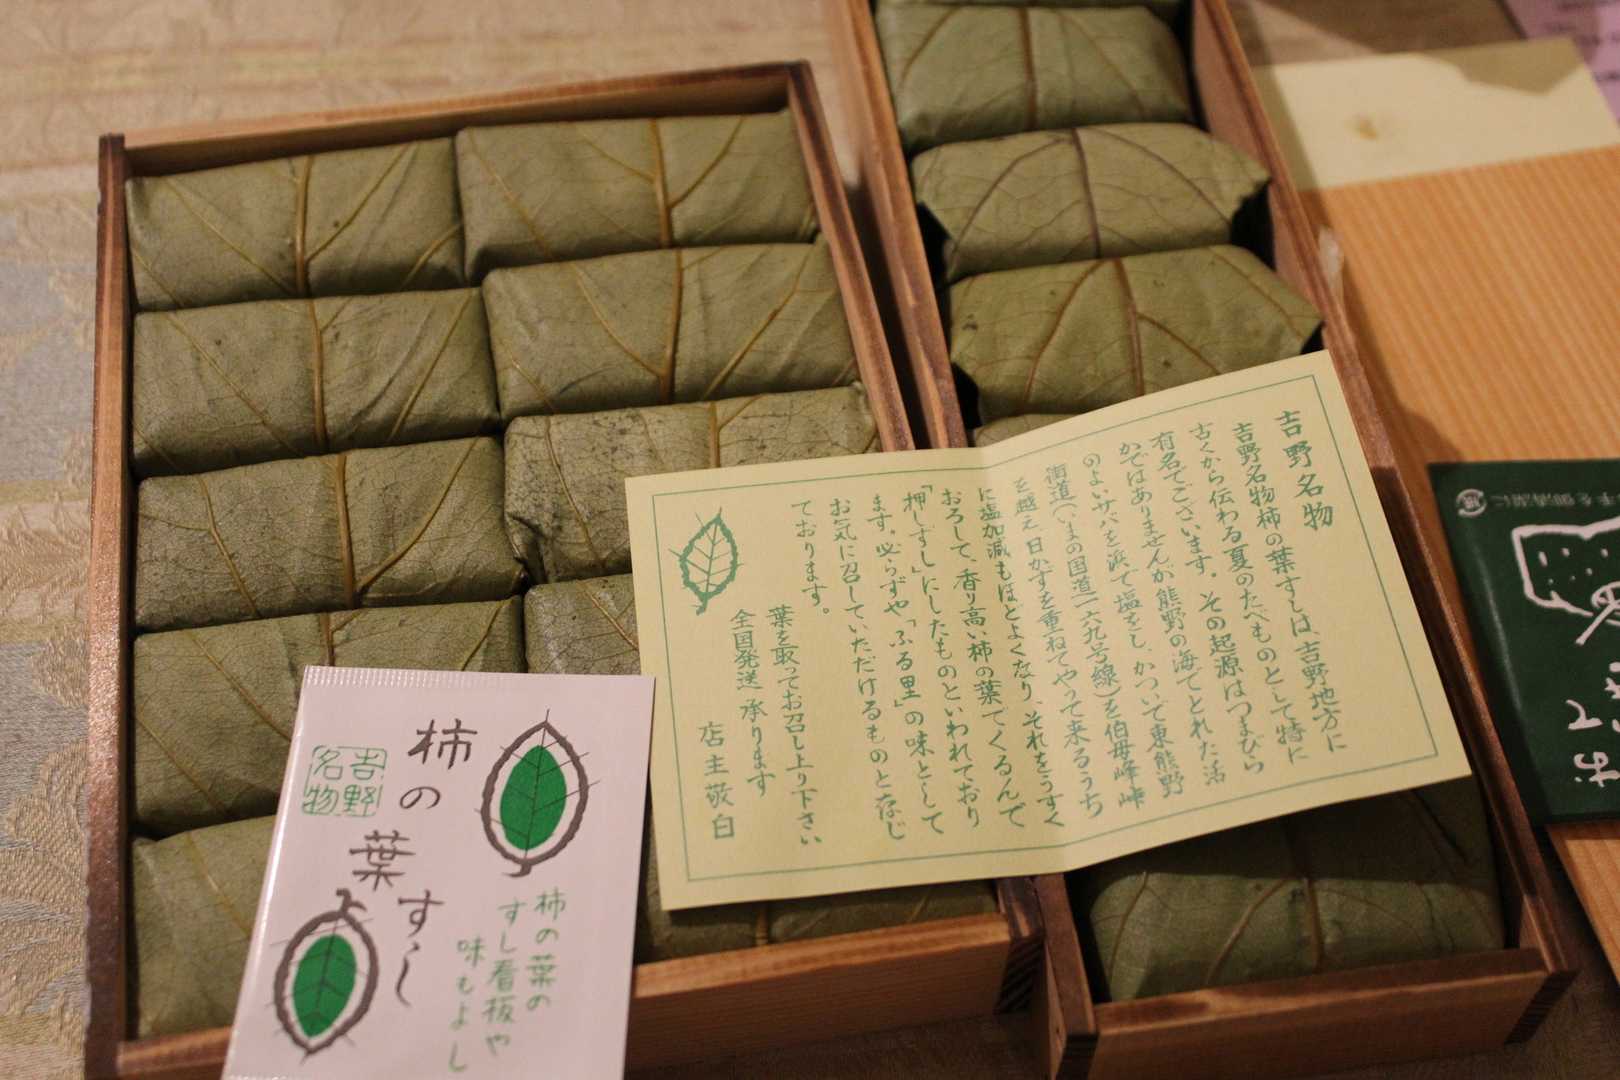 吉野名物
吉野名物柿の葉すしは、吉野地方に
古くから伝わる夏のたべものとして特に
有名でございます。その起源はつまびら
かではありませんが熊野の海でとれた活
のよいサバを浜で塩をし、かついで東熊野
街道(いまの国道一六九号線)を伯母峰峠
を越え、日かずを重ねてやって来るうち
に塩加減もほどよくなり、それをうすく
おろして、香り高い柿の葉でくるんで
「押しずし」にしたものといわれており
ます。必らずや「ふる里」の味として
お気に召していただけるものと存じ
ております。
葉を取ってお召し上り下さい
全国発送承ります
店主敬白
柿の葉すし
吉野
名物
柿の葉の
すし看板や
味もよし